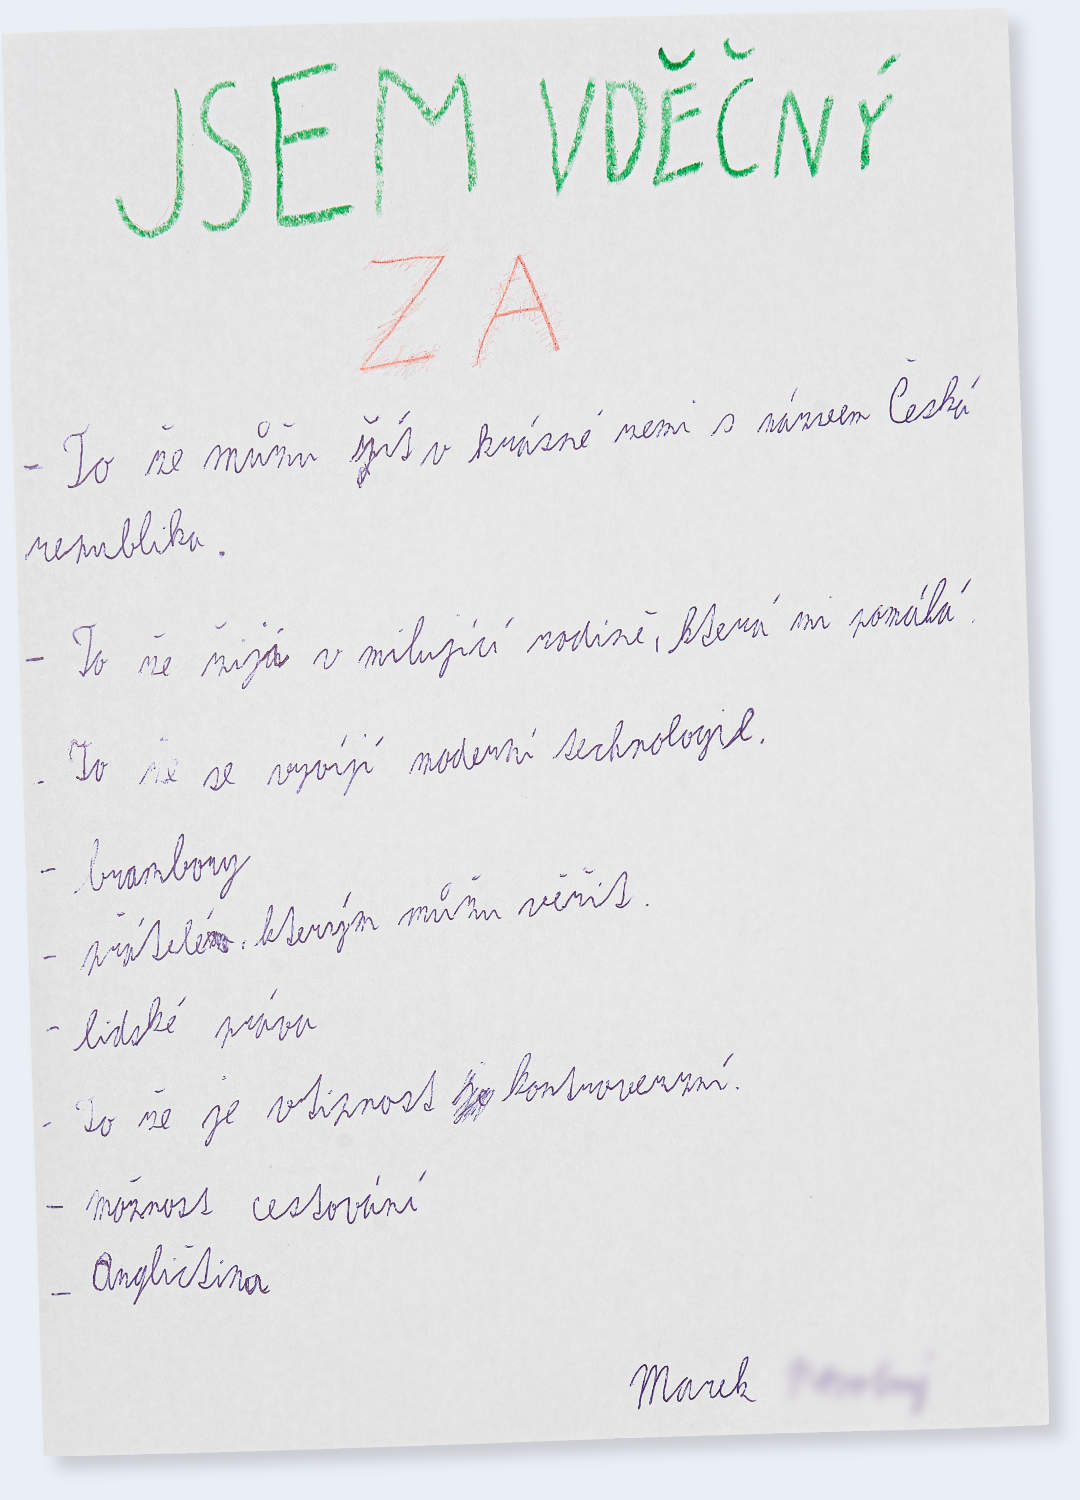 JSEM VDĚČNÝ
ZA
- To že můžu žít v krásné zemi s názvem Česká
republika.
- To že žijá v milující rodině, která mi pomáhá.
- To že se vyvíjí moderní technologie.
- brambory
- přátelé, kterým můžu věřit.
- lidské práva
- To že je vtipnost kontroverzní.
- možnost cestování
- Angličtina
Marek